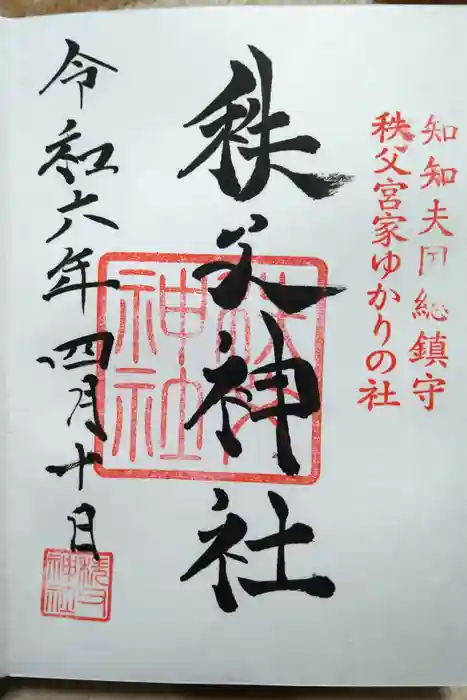 知知夫国総鎮守
秩父宮家ゆかりの社
秩父神社
令和六年四月十日
秩父神社
秩父神社